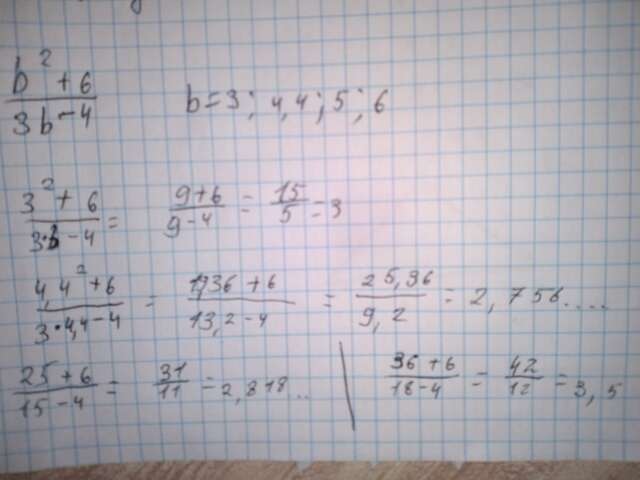 b² + 6 / 3b - 4    b = 3; 4,4; 5; 6
3² + 6 / 3·3 - 4 = 9 + 6 / 9 - 4 = 15 / 5 = 3
4,4² + 6 / 3·4,4 - 4 = 1,36 + 6 / 13,2 - 4 = 25,36 / 9,2 = 2,756....
25 + 6 / 15 - 4 = 31 / 11 = 2,818.. | 36 + 6 / 18 - 4 = 42 / 12 = 3,5